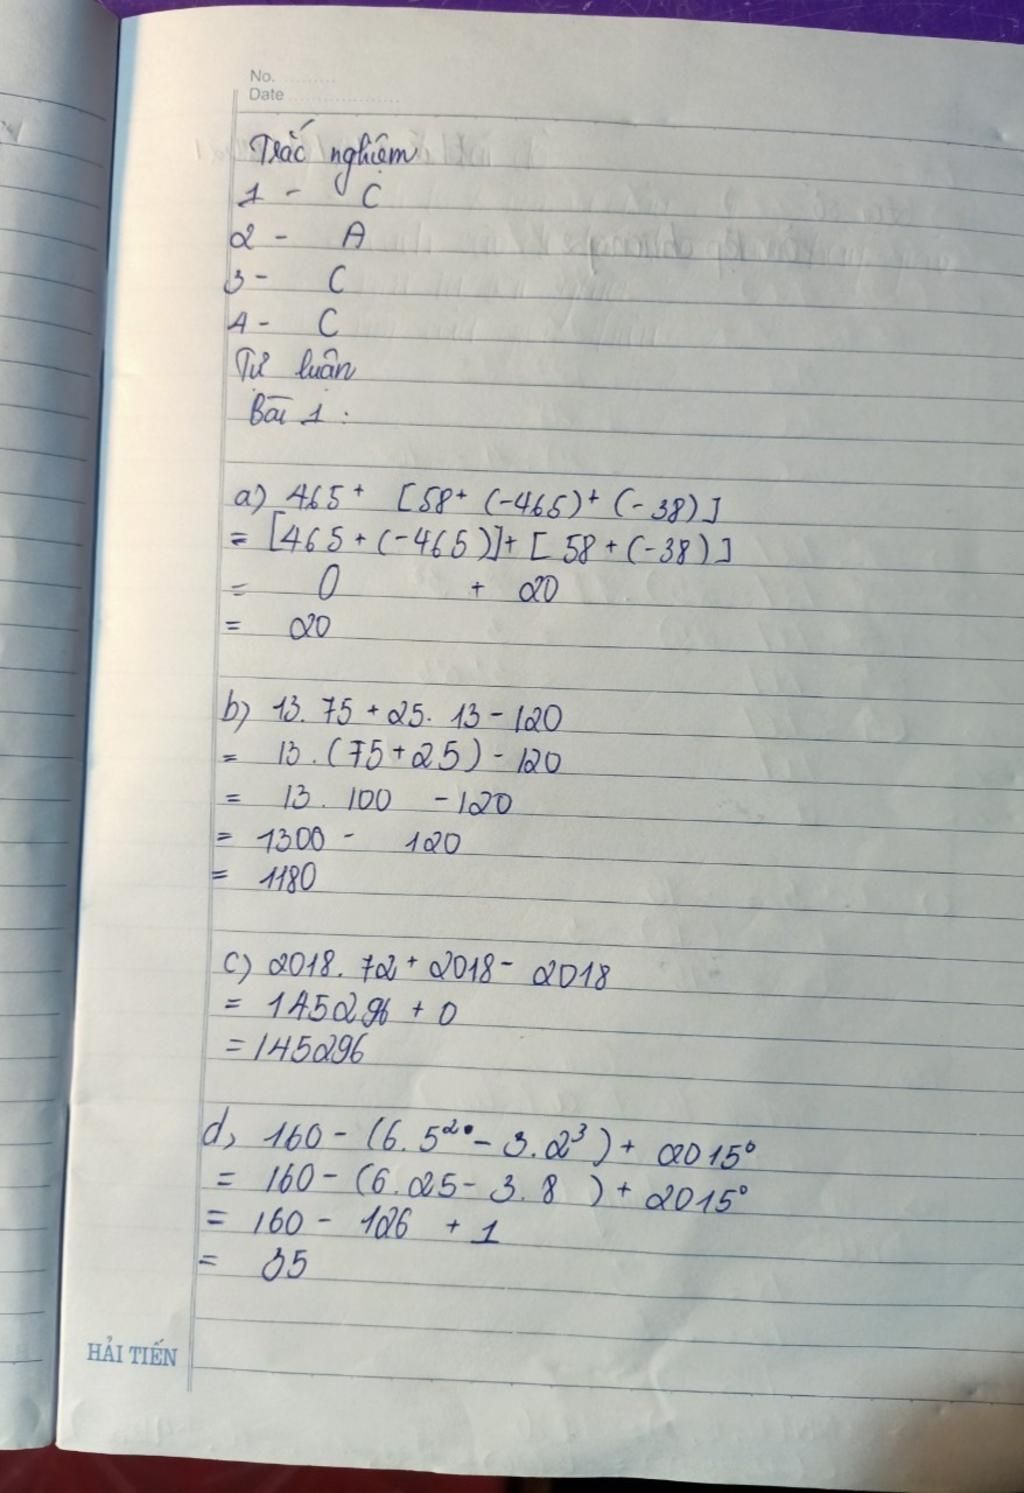 No.
Date
Trắc nghiệm
1 - C
2 - A
3 - C
4 - C
Tự luận
Bài 1 :
a) 465 + [58 + (-465) + (-38)]
= [465 + (-465)] + [58 + (-38)]
= 0 + 20
= 20
b) 13. 75 + 25. 13 - 120
= 13. (75 + 25) - 120
= 13. 100 - 120
= 1300 - 120
= 1180
c) 2018. 72 + 2018 - 2018
= 145296 + 0
= 145296
d, 160 - (6. 5² - 3. 2³) + 2015⁰
= 160 - (6. 25 - 3. 8) + 2015⁰
= 160 - 126 + 1
= 35
HẢI TIẾN